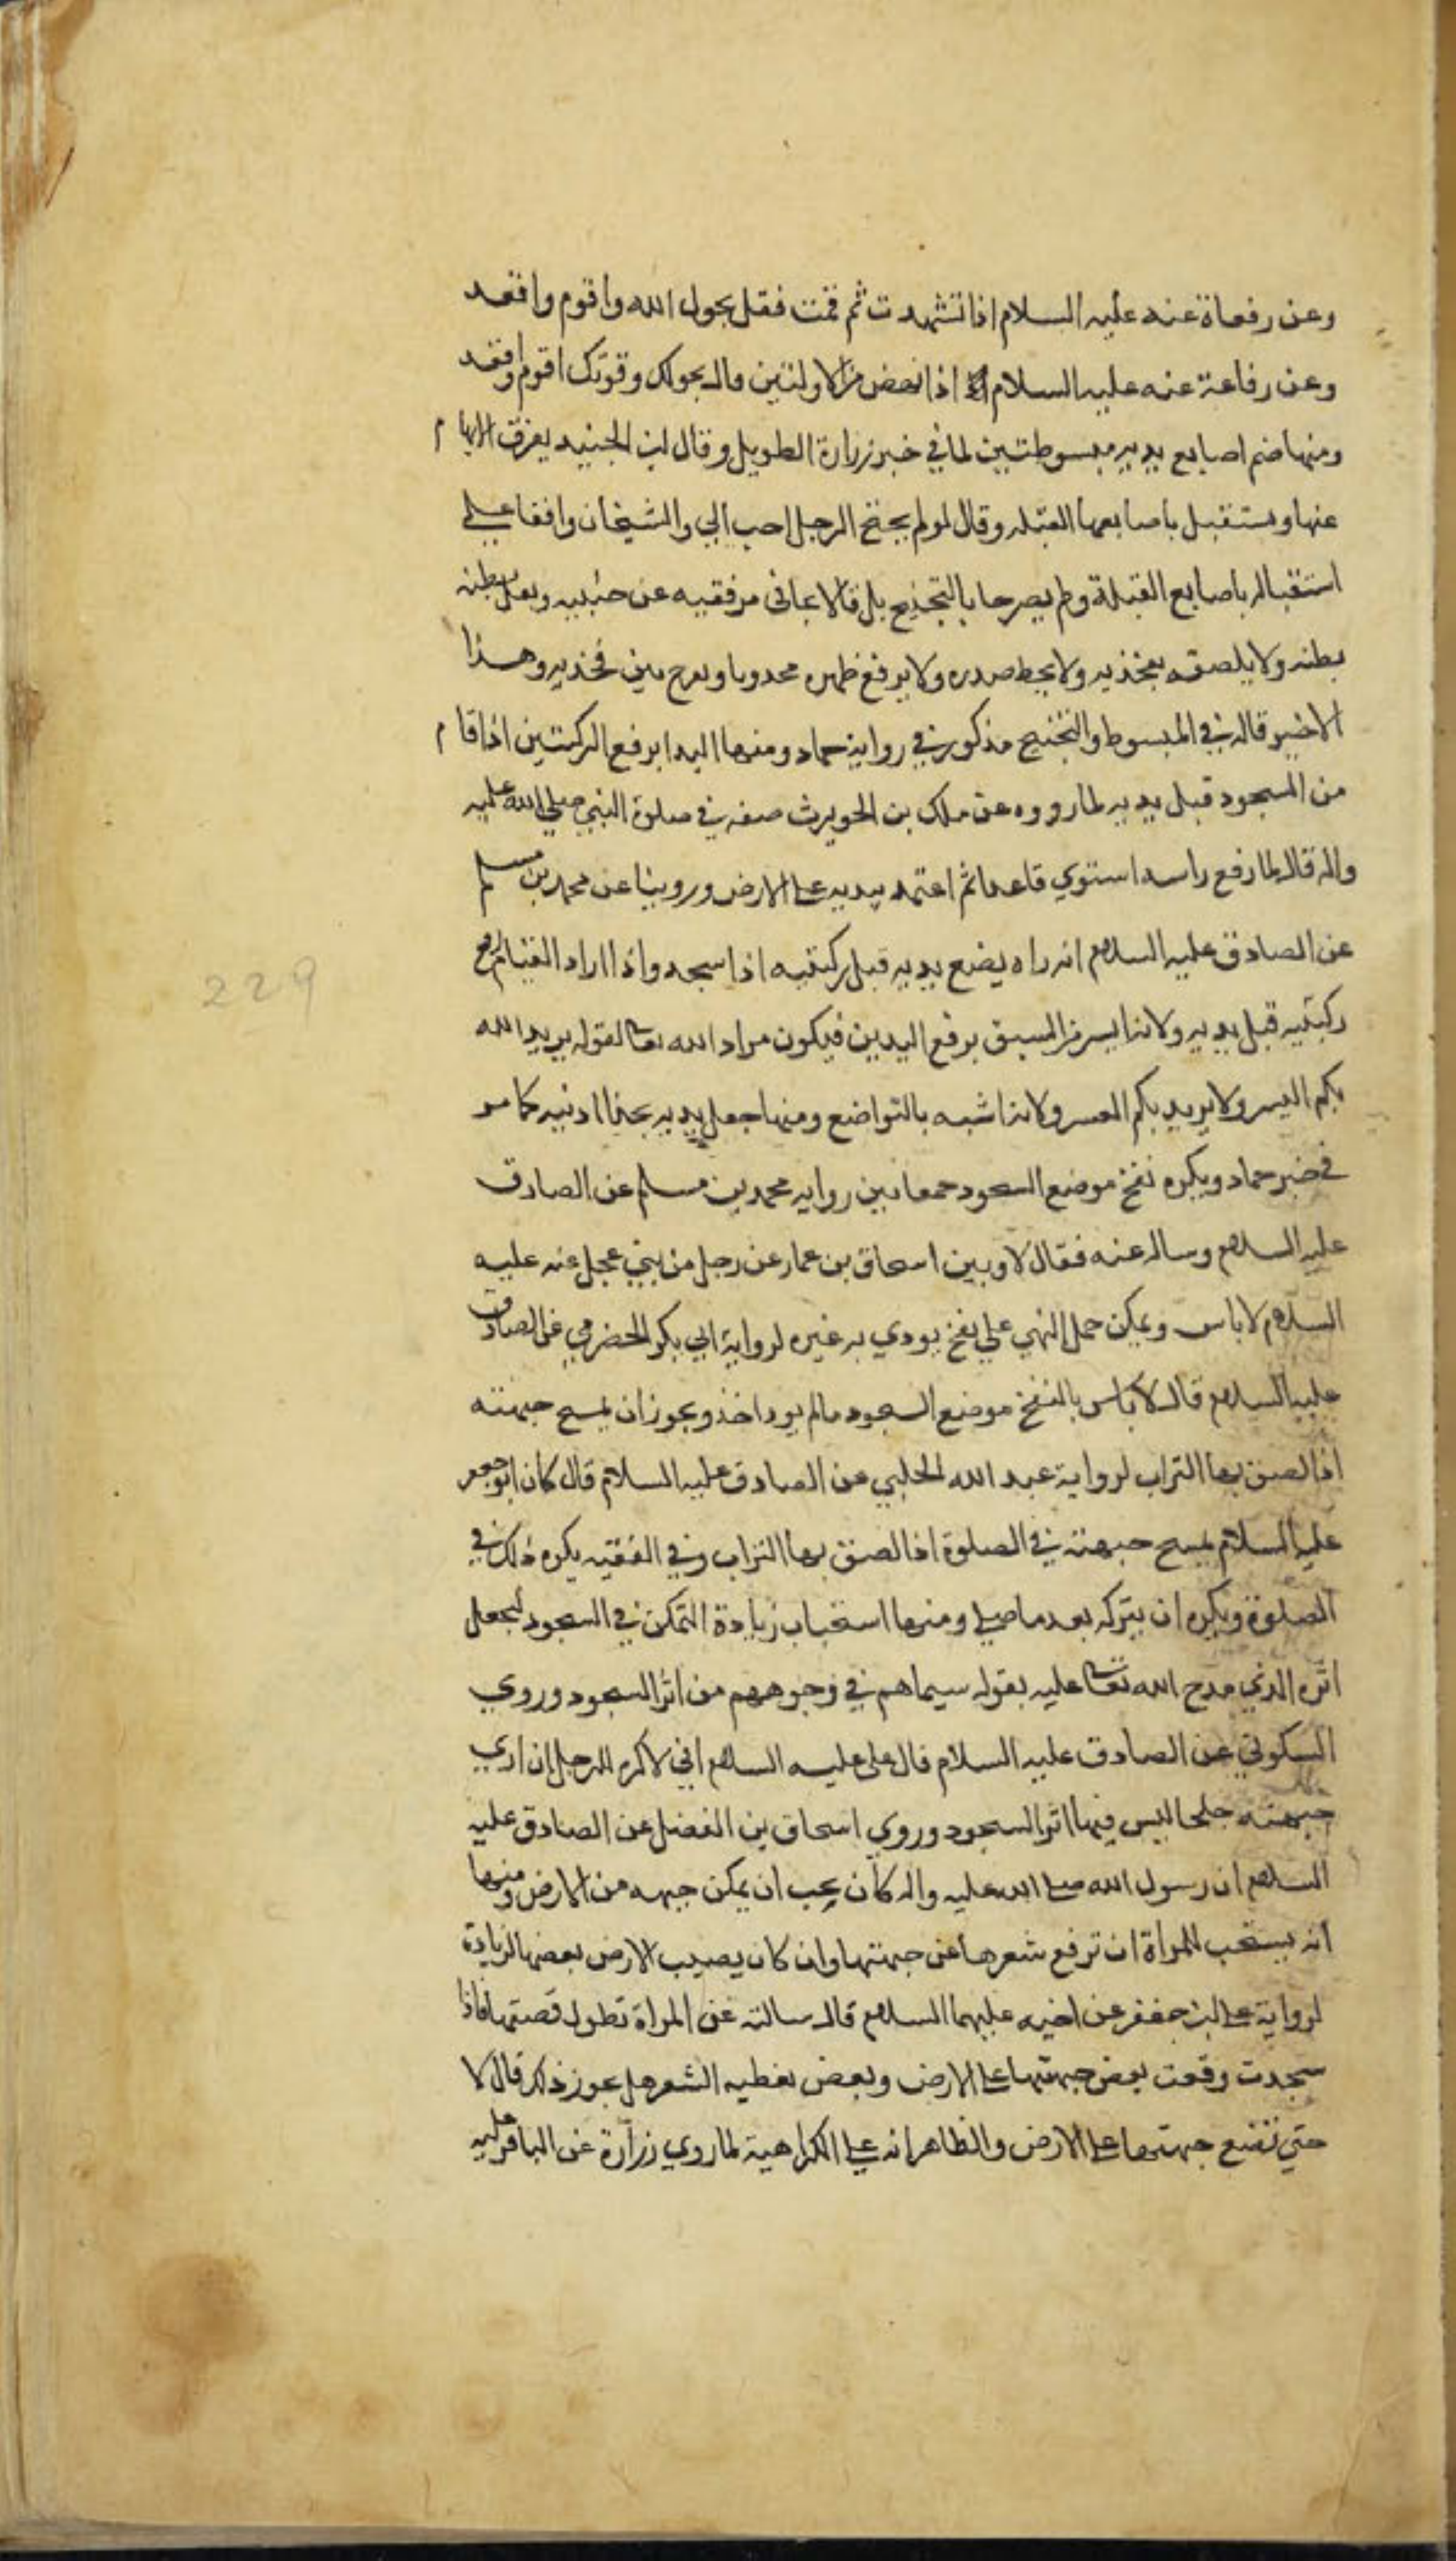 وعن رفعاة عنه عليه السلام اذا تشهدت ثم قمت فقل بحول الله واقوم واقعد
وعن رفاعة عنه عليه السلام اذا نهض من الاولتين قال بحولك وقوتك اقوم واقعد
ومنها ضم اصابع يديه مبسوطتين لما في خبر زرارة الطويل وقال ابن الجنيد يفرق الابهام
عنها ويستقبل باصابعها القبلة وقال لو لم يجنح الرجل احب الي والشيخان وافقا على
استقباله باصابع القبلة ولم يصرحا بالتجنيح بل قالا يجافي مرفقيه عن جنبيه ويعل بطنه
بطنه ولا يلصقه بفخذيه ولا يحط صدره ولا يرفع ظهره محدوبا ويفرج بين فخذيه وهذا
الاخير قاله في المبسوط والتجنيح مذكور في رواية حماد ومنها البدا برفع الركبتين اذا قام
من السجود قبل يديه لما رووه عن ملك بن الحويرث صفه في صلوة النبي صلى الله عليه
واله قال لما رفع راسه استوي قاعدا ثم اعتمد بيديه على الارض وروينا عن محمد بن مسلم
عن الصادق عليه السلام انه راه يضع يديه قبل ركبتيه اذا سجد واذا اراد القيام رفع
ركبتيه قبل يديه ولانه ايسر من السبق برفع اليدين فيكون مراد الله تعا لقوله يريد الله
بكم اليسر ولا يريد بكم العسر ولانه اشبه بالتواضع ومنها جعل يديه بحذا اذنيه كما مر
في خبر حماد ويكره نفخ موضع السجود جمعا بين رواية محمد بن مسلم عن الصادق
عليه السلام وساله عنه فقال لا وبين اسحاق بن عمار عن رجل من بني عجل عنه عليه
السلام لا باس ويمكن حمل النهي على نفخ يودي به غيره لرواية ابي بكر الحضرمي عن الصادق
عليه السلام قال لا باس بالنفخ موضع السجود مالم يود احد ويجوز ان يمسح جبهته
اذا لصق بها التراب لرواية عبد الله الحلبي عن الصادق عليه السلام قال كان ابو جعفر
عليه السلام يمسح جبهته في الصلوة اذا لصق بها التراب وفي الفقيه يكره ذلك في
الصلوة ويكره ان يتركه بعد ما صلي ومنها استحباب زيادة التمكن في السجود ليحصل
اثره الذي مدح الله تعا عليه بقوله سيماهم في وجوههم من اثر السجود وروي
السكوني عن الصادق عليه السلام قال علي عليه السلام اني لاكره للرجل ان اري
جبهته جلحا ليس فيها اثر السجود وروي اسحاق بن الفضل عن الصادق عليه
السلام ان رسول الله صلى الله عليه واله كان يحب ان يمكن جبهه من الارض ومنها
انه يستحب للمراة ان ترفع شعرها عن جبهتها وان كان يصيب الارض بعضها لزيادة
لرواية علي بن جعفر عن اخيه عليهما السلام قال سالته عن المراة تطول قصتها فاذا
سجدت وقعت بعض جبهتها على الارض وبعض يغطيه الشعر هل يجوز ذلك قال لا
حتي تضع جبهتها على الارض والظاهر انه على الكراهية لما روي زرارة عن الباقر عليه
229